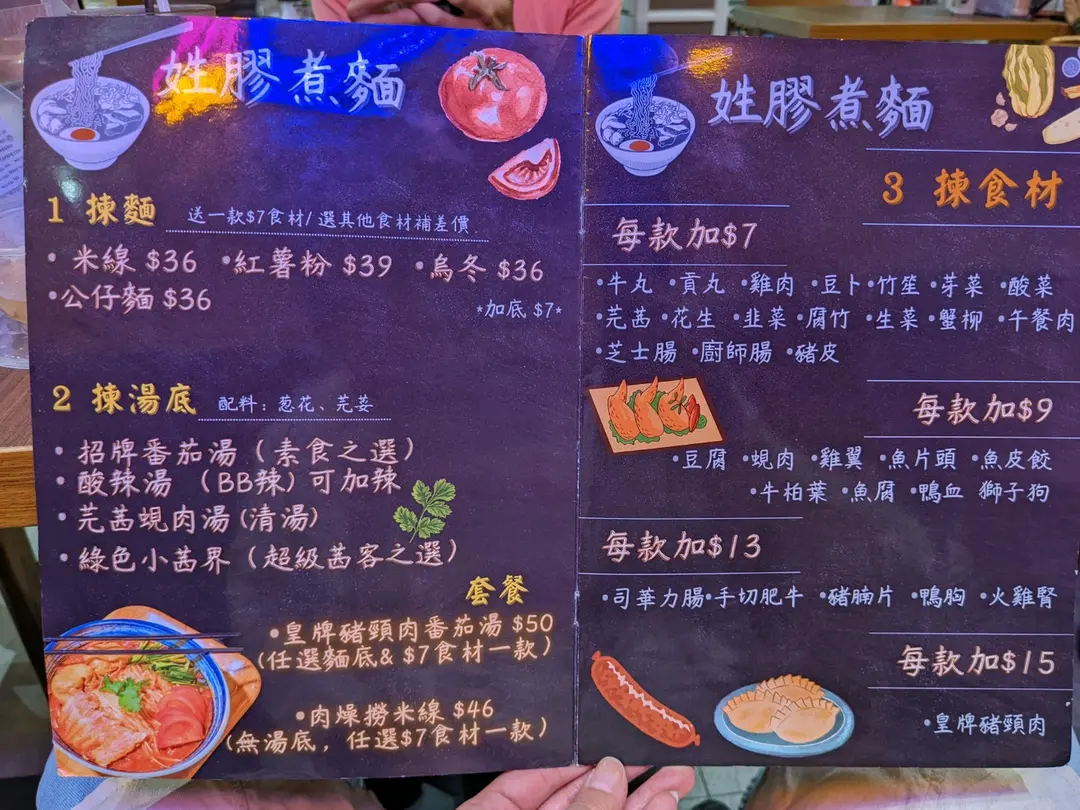 姓膠煮麵
1 揀麵 送一款$7食材/選其他食材補差價
•米線 $36 •紅薯粉 $39 •烏冬 $36
•公仔麵 $36
*加底 $7*
2 揀湯底 配料：葱花、芫荽
• 招牌番茄湯（素食之選）
• 酸辣湯 （BB辣）可加辣
• 芫茜蜆肉湯(清湯)
• 綠色小茜界（超級茜客之選）
套餐
•皇牌豬頸肉番茄湯 $50
(任選麵底& $7食材一款）
•肉燥撈米線 $46
(無湯底，任選$7食材一款）
姓膠煮麵
3 揀食材
每款加$7
•牛丸 •貢丸 •雞肉 •豆卜•竹笙•芽菜 •酸菜
•芫茜 •花生 •韭菜 •腐竹 •生菜 •蟹柳 •午餐肉
•芝士腸 •廚師腸 •豬皮
每款加$9
•豆腐 •蜆肉 •雞翼 •魚片頭 •魚皮餃
•牛柏葉 •魚腐 •鴨血 獅子狗
每款加$13
•司華力腸•手切肥牛 •豬腩片 •鴨胸 •火雞腎
每款加$15
•皇牌豬頸肉